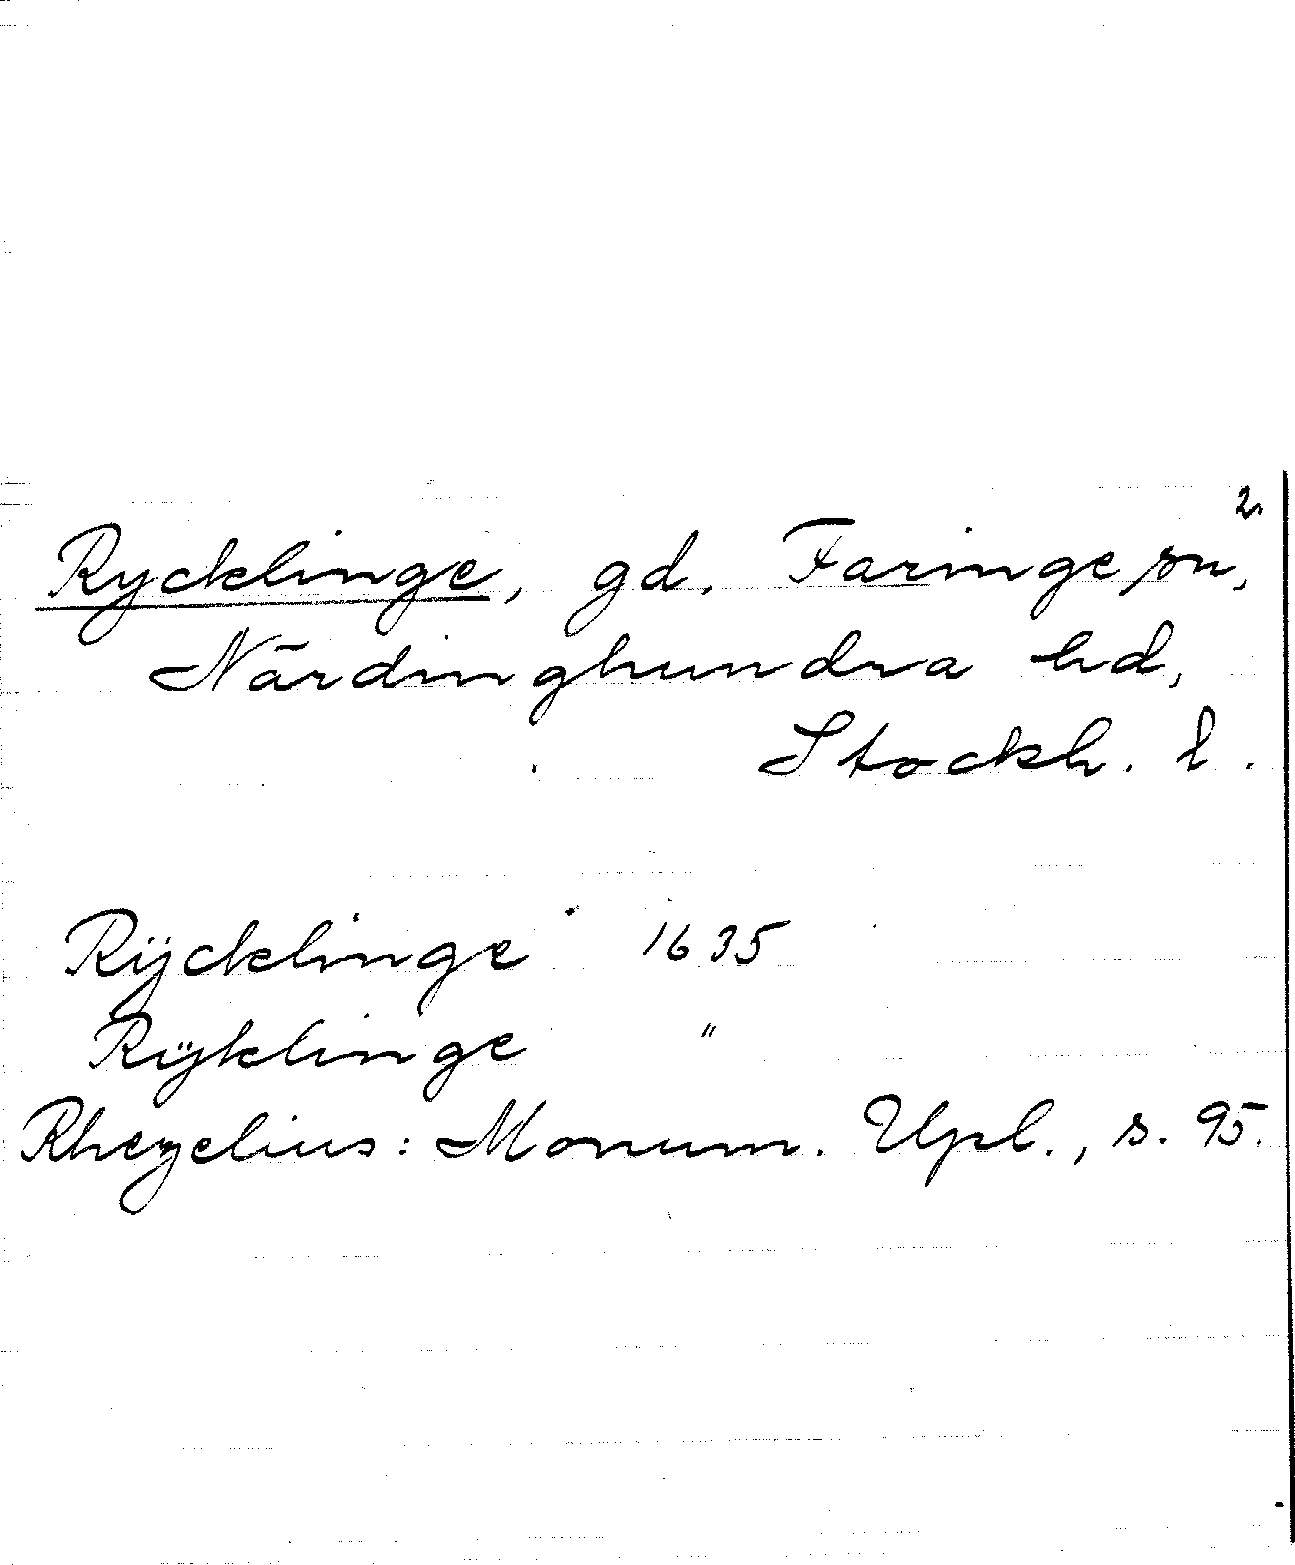 2.
Rycklinge, gd. Faringe sn,
Närdinghundra hd,
Stockh. l.
Rÿcklinge 1635
Rÿklinge "
Rhezelius: Monum. Upl., s. 95.